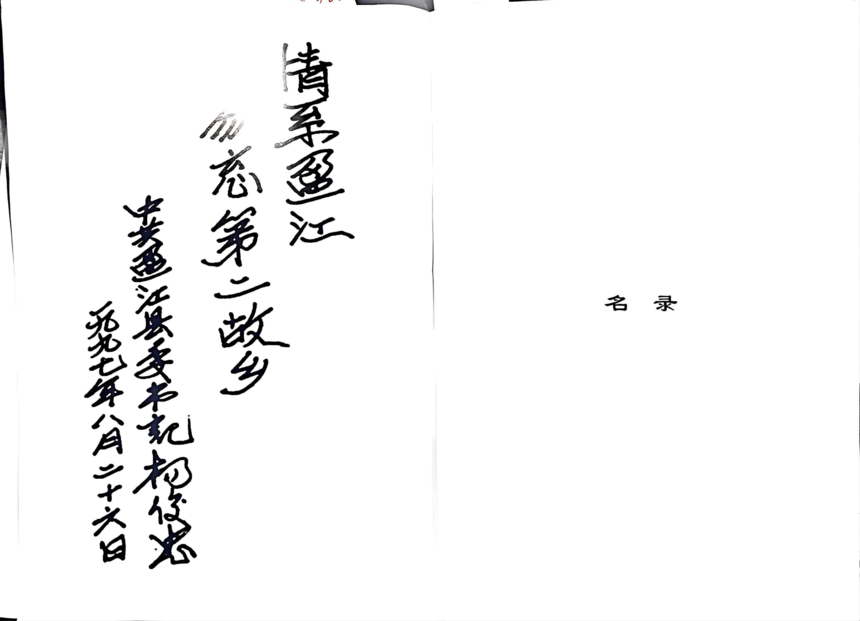 情系盈江
勿忘第二故乡
中共盈江县委书记杨俊忠
一九九七年八月二十六日
名录